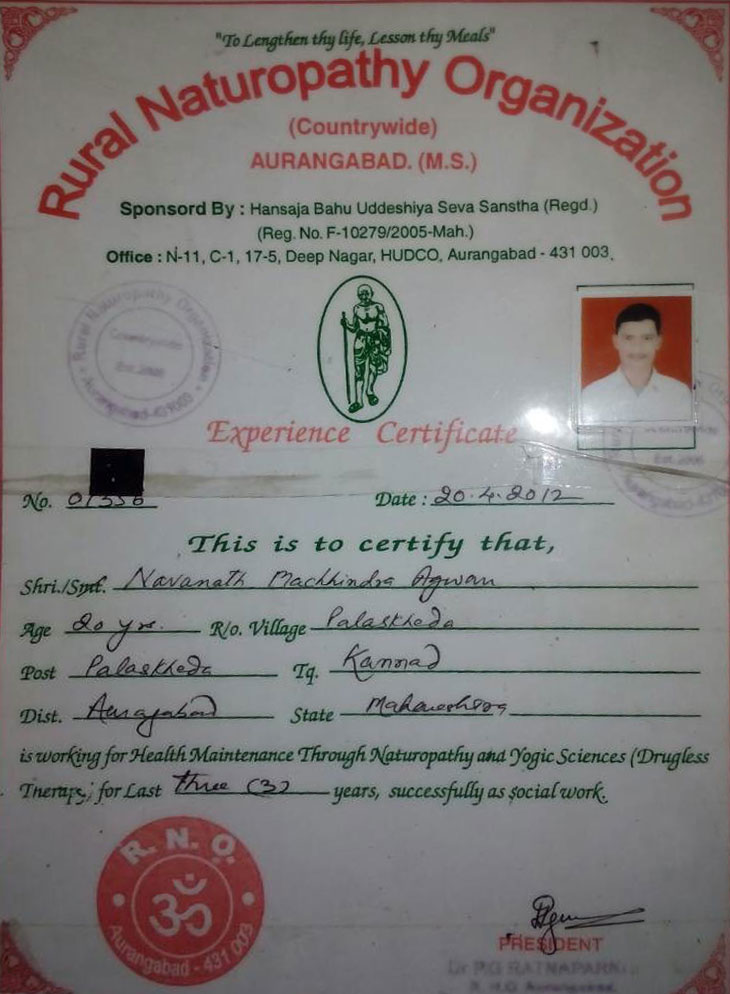 "To Lengthen thy life, Lesson thy Meals"
Rural Naturopathy Organization
(Countrywide)
AURANGABAD. (M.S.)
Sponsord By : Hansaja Bahu Uddeshiya Seva Sanstha (Regd.)
(Reg. No. F-10279/2005-Mah.)
Office : N-11, C-1, 17-5, Deep Nagar, HUDCO, Aurangabad - 431 003.
Rural Naturopathy Organization
Countrywide
Aurangabad
Experience Certificate
No. 01356 Date : 20.4.2012
This is to certify that,
Shri./Smt. Navanath Machhindra Agwan
Age 20 yrs. R/o. Village Palaskheda
Post Palaskheda Tq. Kannad
Dist. State
is working for Health Maintenance Through Naturopathy and Yogic Sciences (Drugless
Therapy) for Last three (3) years, successfully as social work.
R. N. O.
ॐ
Aurangabad - 431 003
PRESIDENT